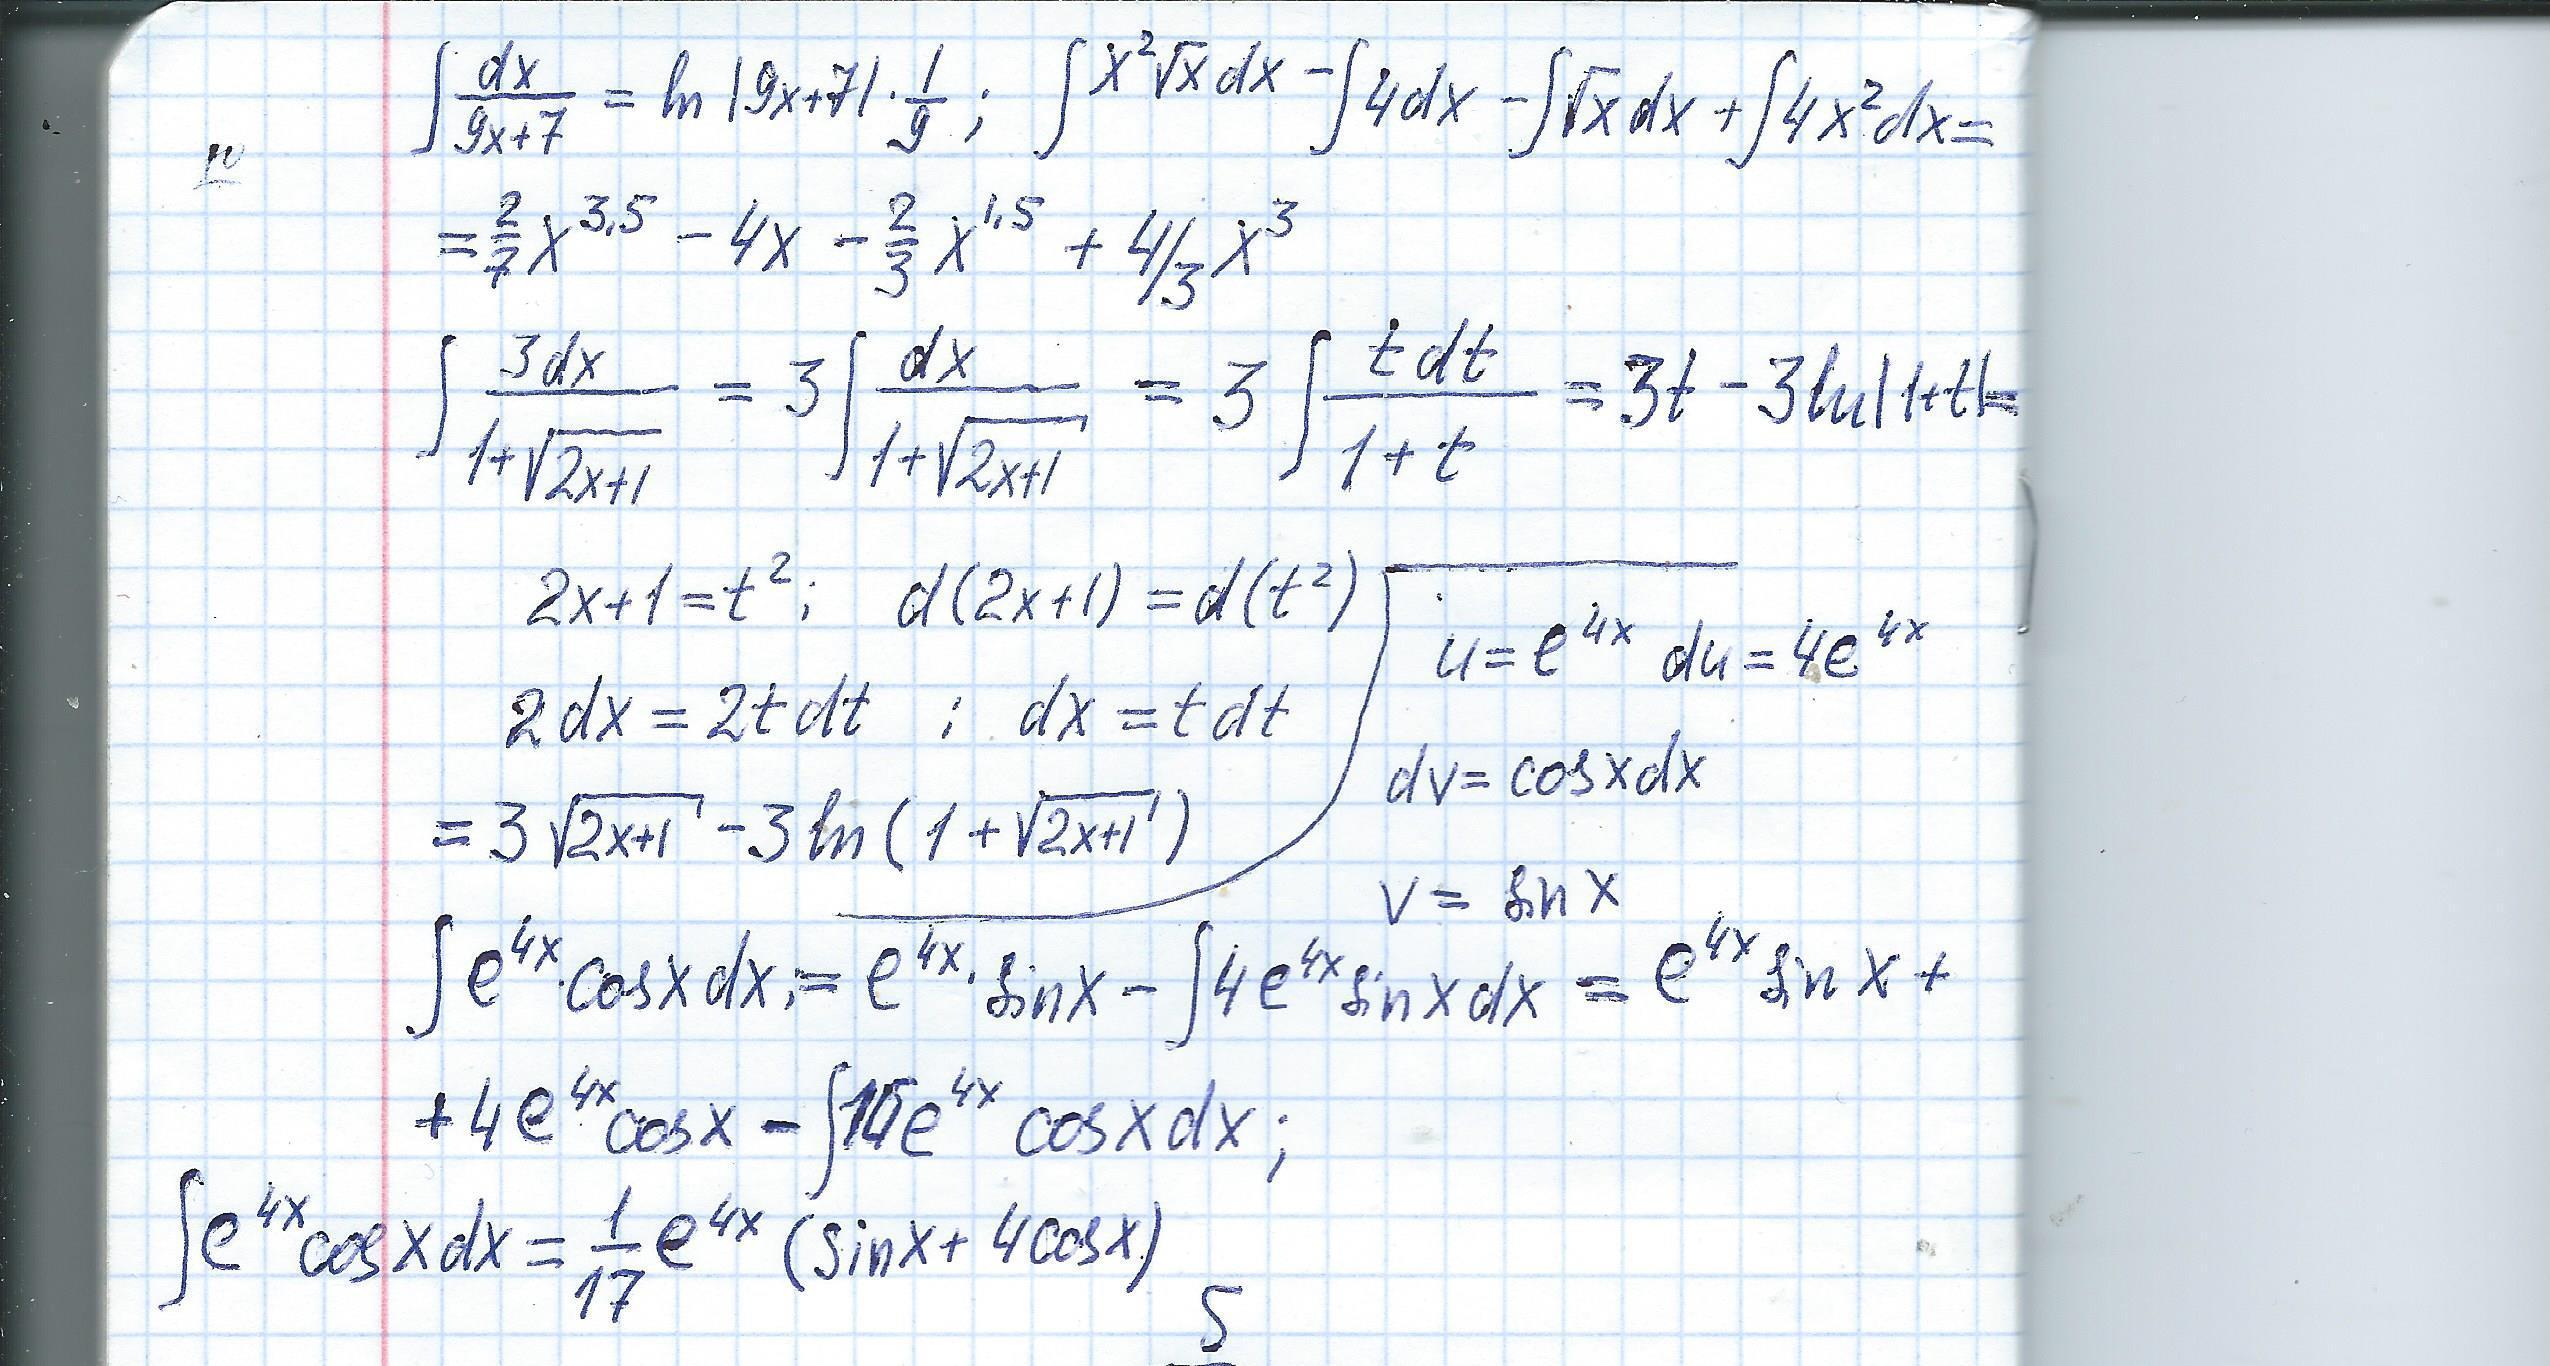 ∫ dx/(9x+7) = ln |9x+7| · 1/9 ; ∫ x²√x dx - ∫ 4dx - ∫ √x dx + ∫ 4x² dx =
= 2/7 x^3,5 - 4x - 2/3 x^1,5 + 4/3 x³
∫ 3dx/(1+√(2x+1)) = 3 ∫ dx/(1+√(2x+1)) = 3 ∫ t dt/(1+t) = 3t - 3 ln |1+t| =
2x+1 = t² ; d(2x+1) = d(t²)
2dx = 2t dt ; dx = t dt
= 3√(2x+1) - 3 ln (1 + √(2x+1))
u = e^4x du = 4e^4x
dv = cos x dx
v = sin x
∫ e^4x · cos x dx = e^4x · sin x - ∫ 4e^4x sin x dx = e^4x sin x +
+ 4e^4x cos x - ∫ e^4x cos x dx ;
∫ e^4x cos x dx = 1/17 e^4x (sin x + 4 cos x)
5